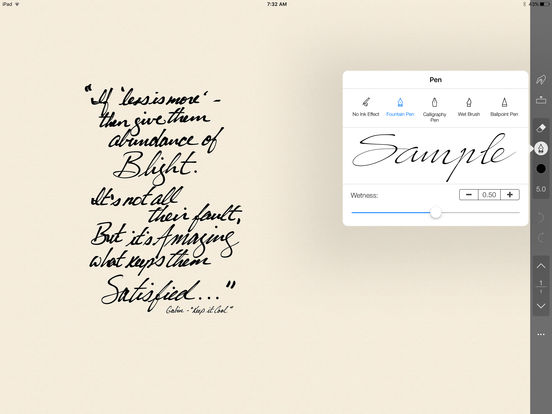 iPad
7:32 AM
43%
"If 'less is more' -
then give them
abundance of
Blight.
It's not all
their fault,
But it's Amazing
what keeps them
Satisfied..."
- "Keep it Cool"
Pen
No Ink Effect
Fountain Pen
Calligraphy Pen
Wet Brush
Ballpoint Pen
Sample
Wetness:
0.50
5.0
1
1